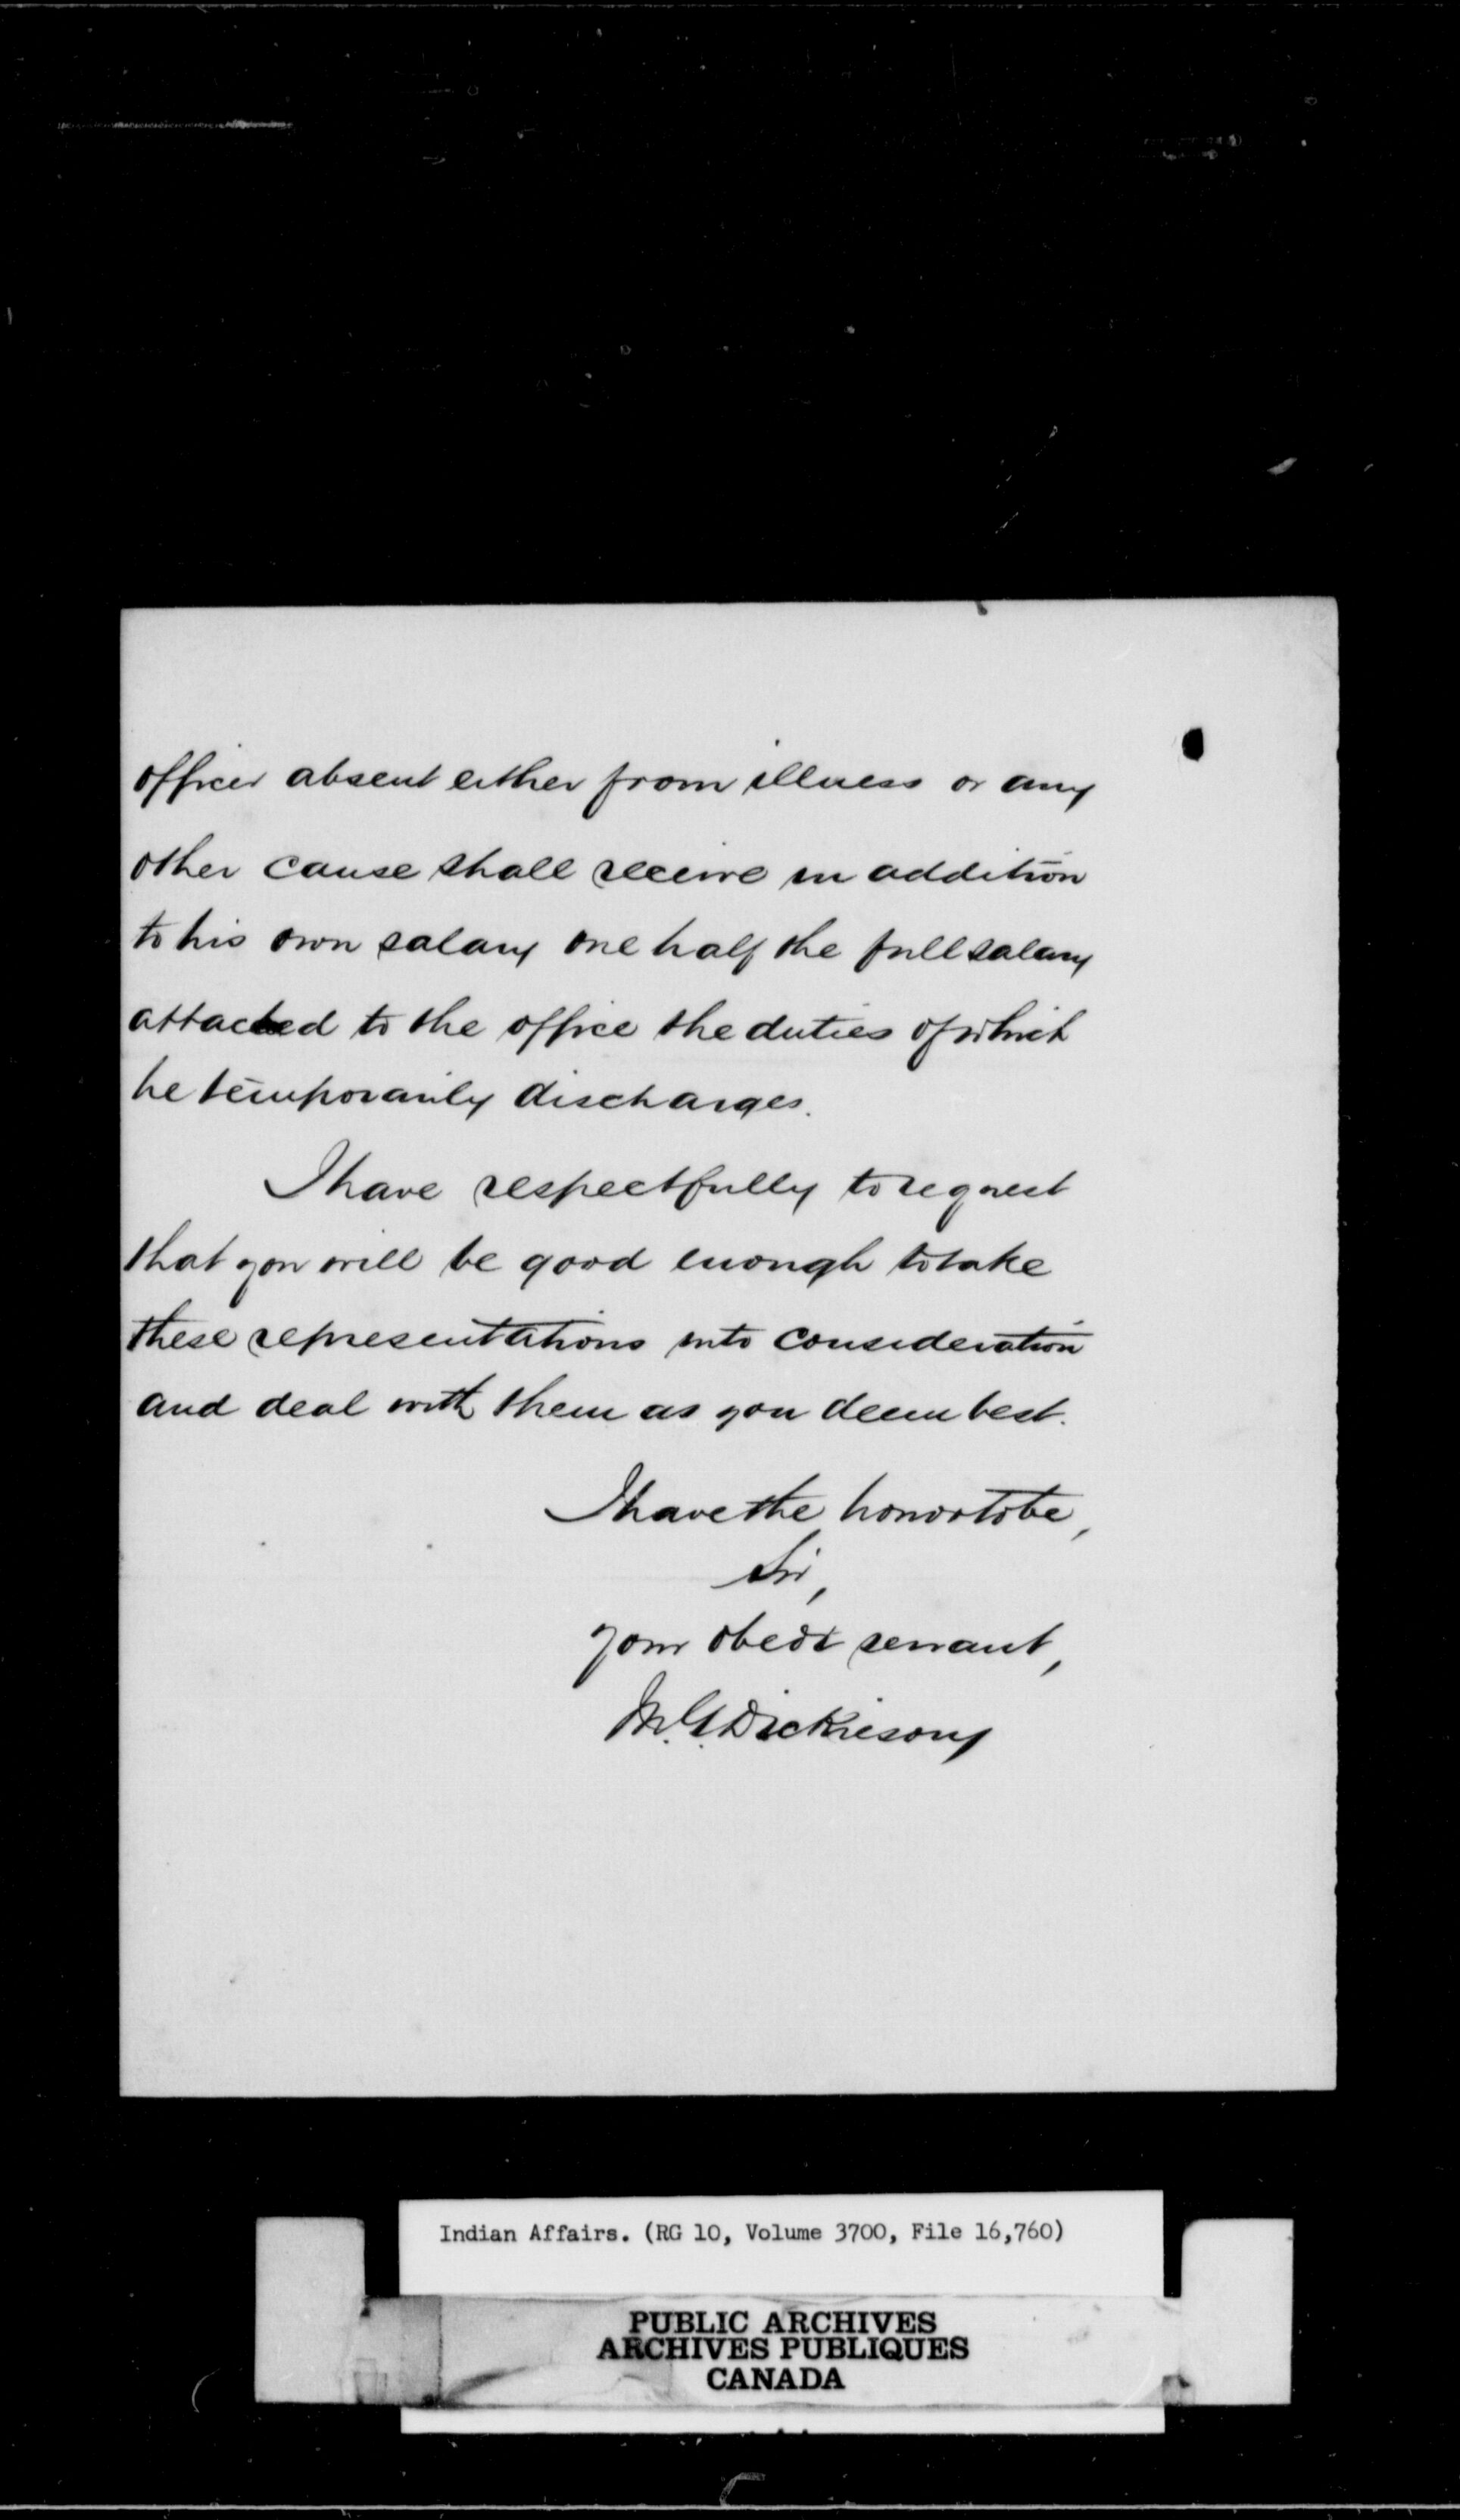 officer absent either from illness or any
other cause shall receive in addition
to his own salary one half the full salary
attached to the office the duties of which
he temporarily discharges.
I have respectfully to request
that you will be good enough to take
these representations into consideration
and deal with them as you deem best.
I have the honor to be,
Sir,
your obedt servant,
M. G. Dickieson
Indian Affairs. (RG 10, Volume 3700, File 16,760)
PUBLIC ARCHIVES
ARCHIVES PUBLIQUES
CANADA